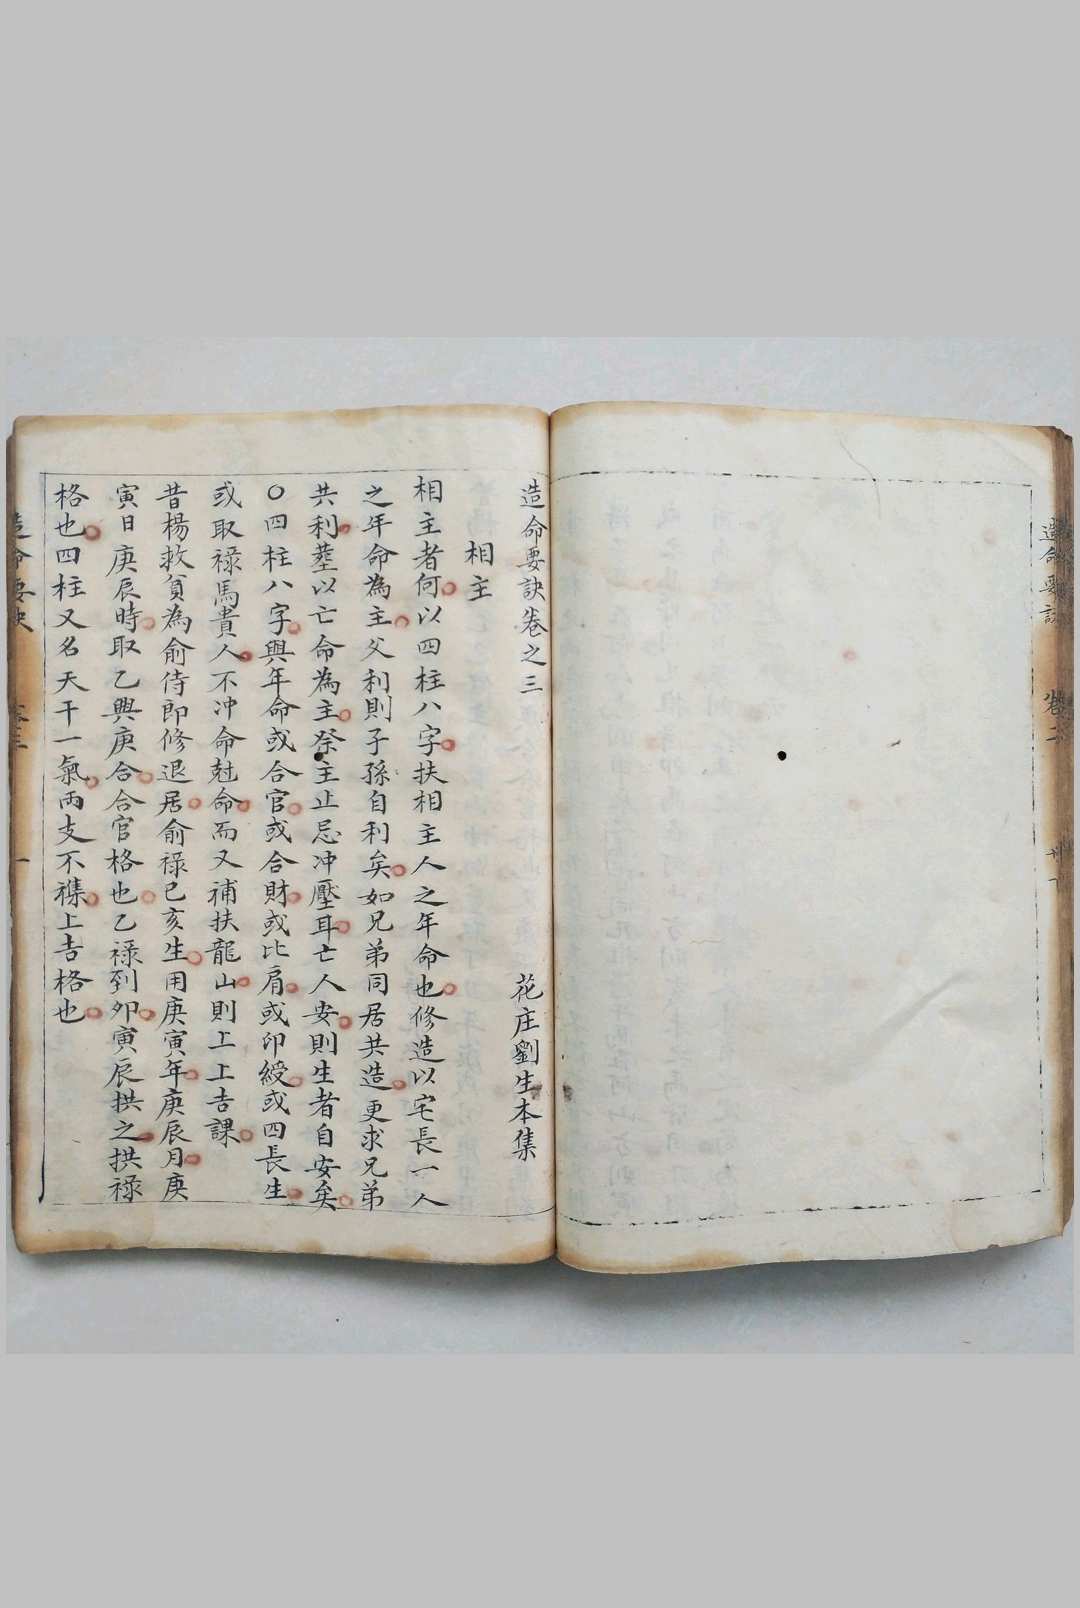 造命要訣
卷二
造命要訣卷之三
花庄劉生本集
相主
相主者何以四柱八字扶相主人之年命也修造以宅長一人
之年命為主父利則子孫自利矣如兄弟同居共造更求兄弟
共利塟以亡命為主祭主止忌冲壓耳亡人安則生者自安矣
○四柱八字與年命或合官或合財或比肩或印綬或四長生
或取禄馬貴人不冲命尅命而又補扶龍山則上上吉課
昔楊救貧為俞侍郎修退居俞禄己亥生用庚寅年庚辰月庚
寅日庚辰時取乙與庚合合官格也乙禄到卯寅辰拱之拱禄
格也四柱又名天干一氣両支不襍上吉格也
造命要訣
卷三
一